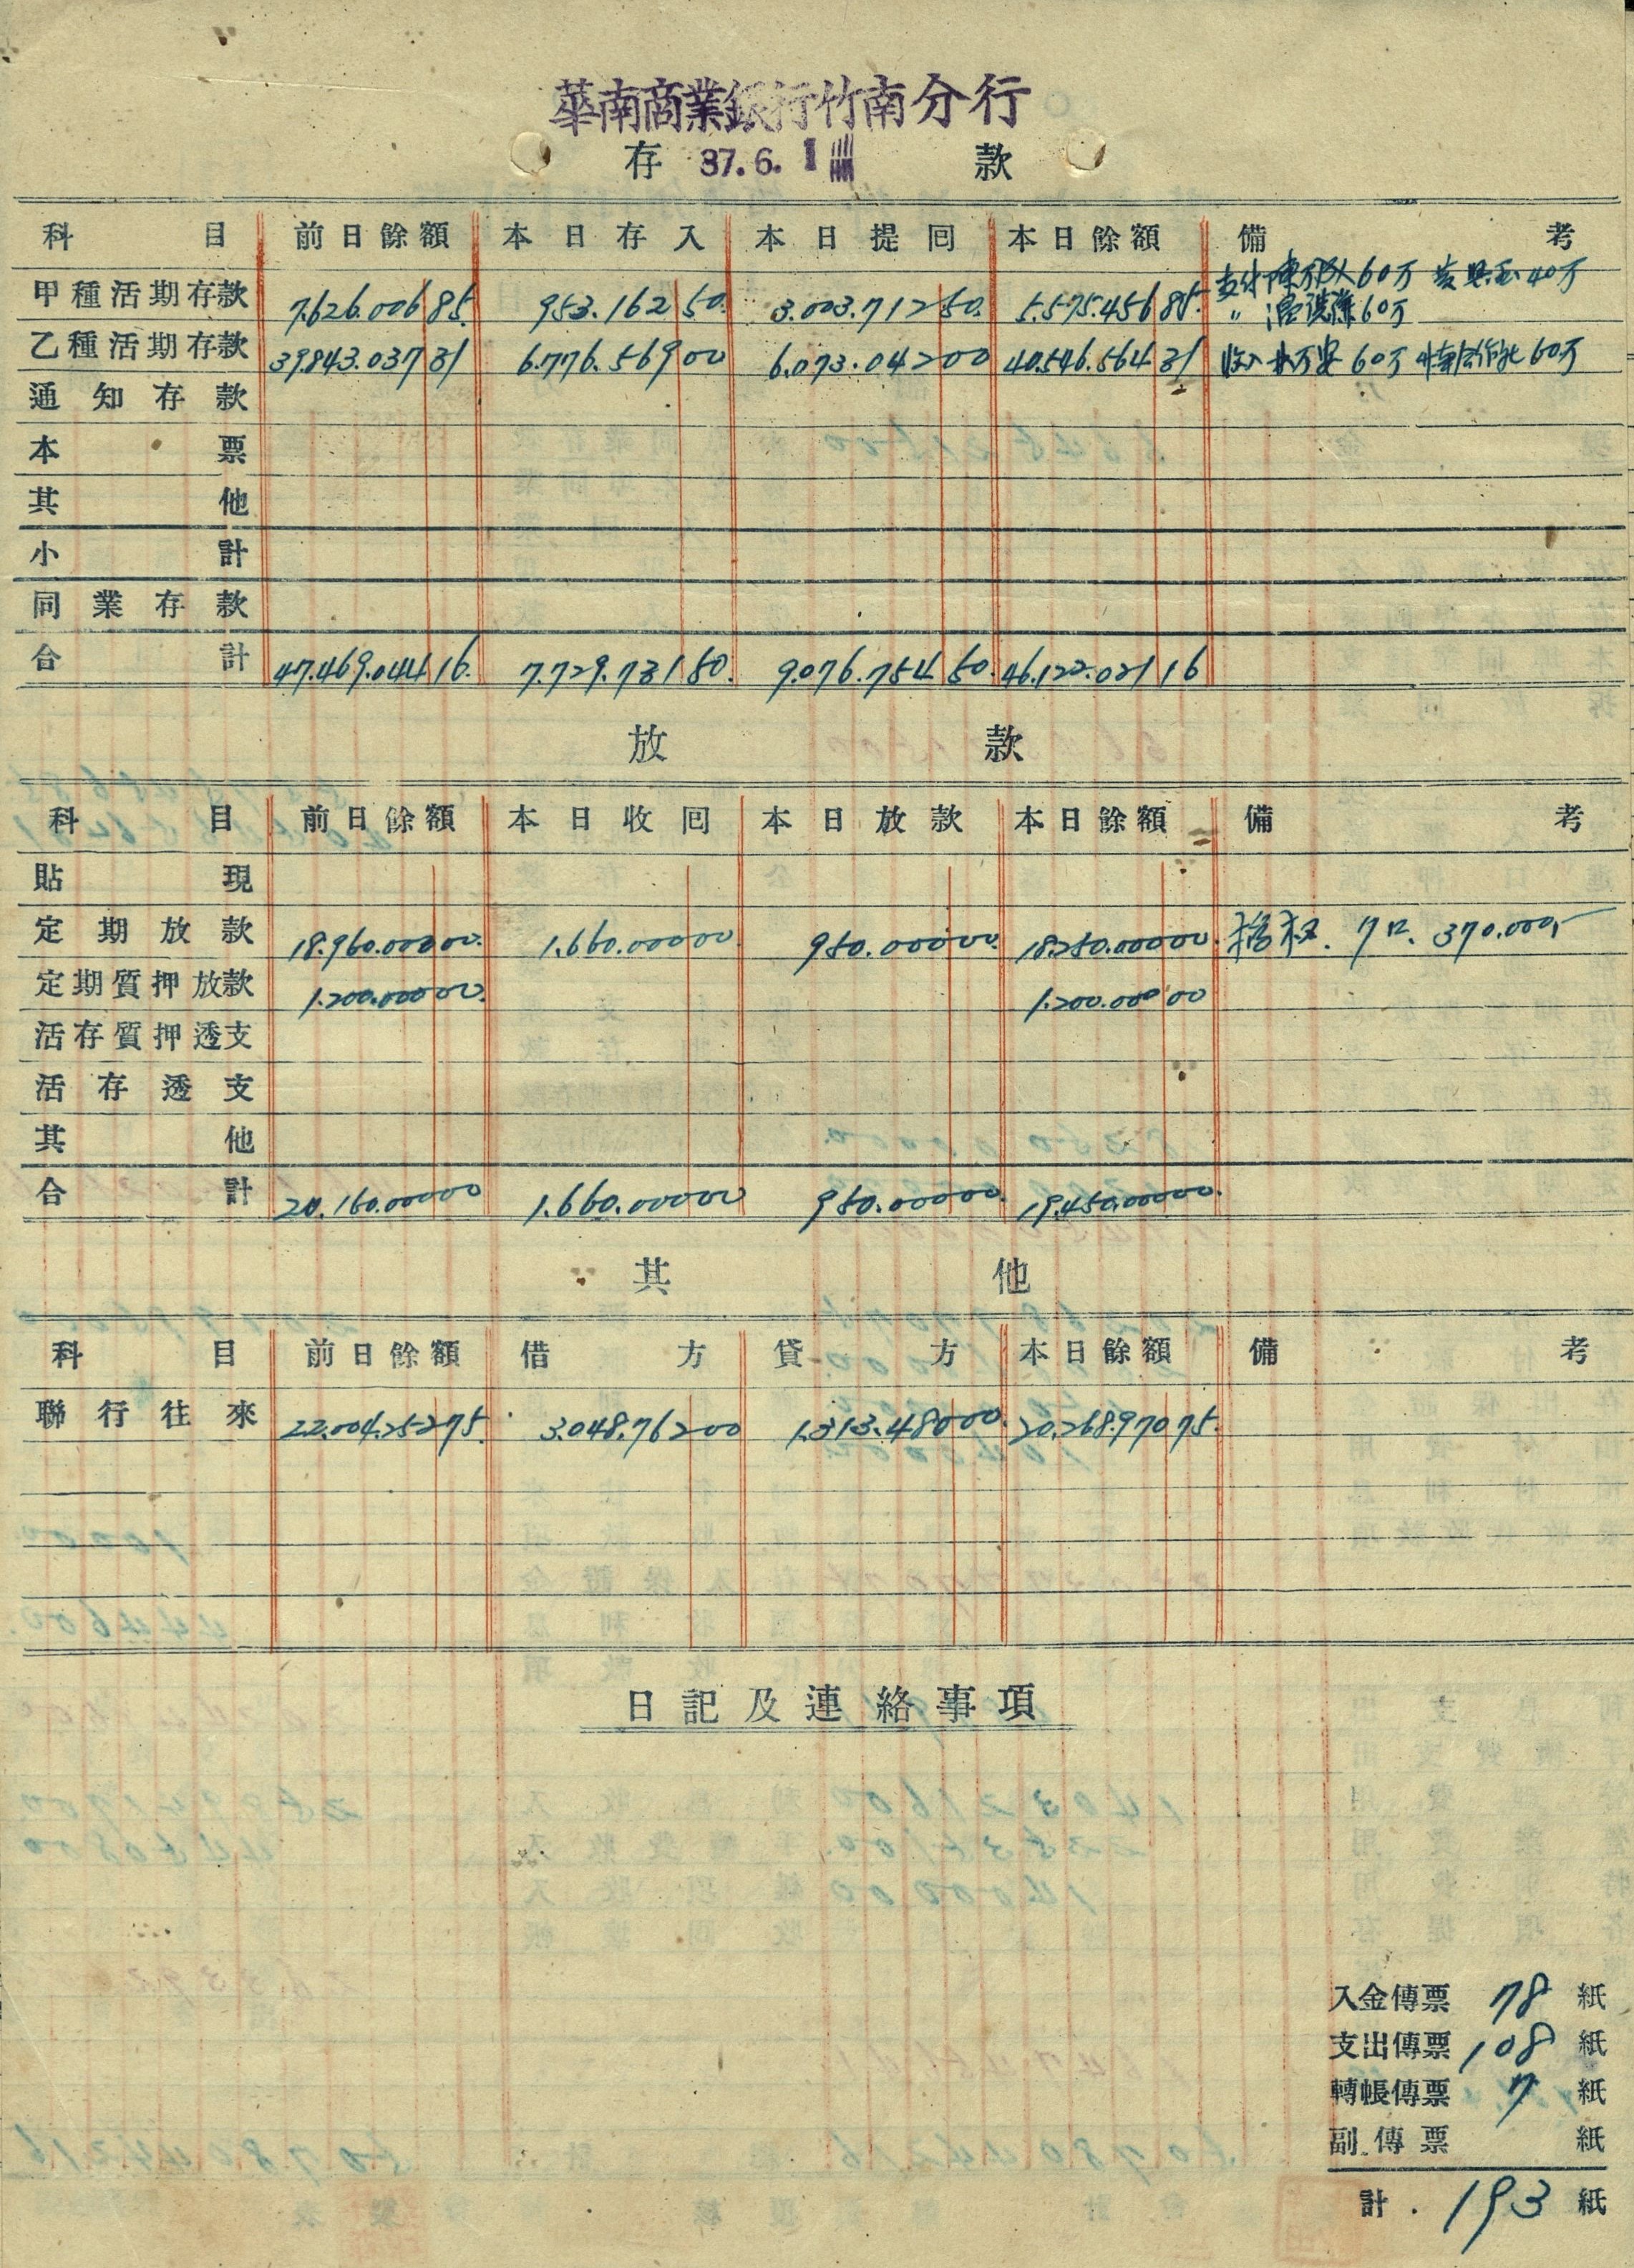 華南商業銀行竹南分行
存 37.6.1 款
科目 前日餘額 本日存入 本日提回 本日餘額 備考
甲種活期存款 7.626.006 85. 953.162 50. 3.003.712 50. 5.575.456 85. 支付 60万 40万
〃 60万
乙種活期存款 39.843.037 31 6.776.569 00 6.073.042 00 40.546.564 31 收入 60万 60万
通知存款
本票
其他
小計
同業存款
合計 47.469.044 16. 7.729.731 50. 9.076.754 50. 46.122.021 16
放款
科目 前日餘額 本日收回 本日放款 本日餘額 備考
貼現
定期放款 18.960.000 00. 1.660.000 00 950.000 00. 18.250.000 00. 7口. 370.000,-
定期質押放款 1.200.000 00. 1.200.000 00
活存質押透支
活存透支
其他
合計 20.160.000 00 1.660.000 00 950.000 00. 19.450.000 00.
其他
科目 前日餘額 借方 貸方 本日餘額 備考
聯行往來 22.004.252 75. 3.048.762 00 1.313.480 00. 20.268.970 75.
日記及連絡事項
入金傳票 78 紙
支出傳票 108 紙
轉帳傳票 7 紙
副傳票 紙
計. 193 紙